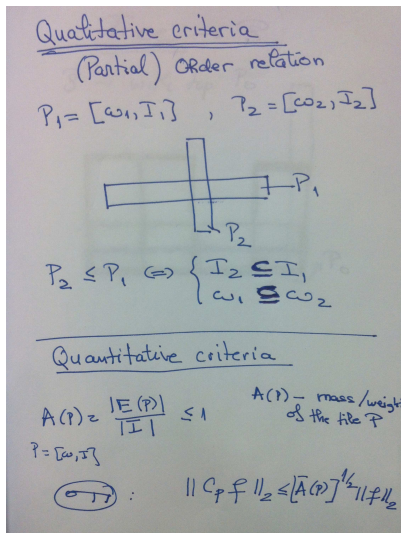 Qualitative criteria
(Partial) Order relation
P₁ = [ω₁, I₁] , P₂ = [ω₂, I₂]
P₁
P₂
P₂ ≤ P₁ ⟺ { I₂ ⊆ I₁
ω₁ ⊆ ω₂
Quantitative criteria
A(P) = |E(P)| / |I| ≤ 1
A(P) – mass/weight
of the tile P
P = [ω, I]
: ‖ C_P f ‖₂ ≤ [A(P)]^{1/2} ‖f‖₂